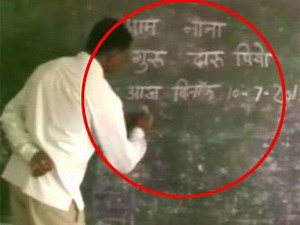 ग्राम नोना
गुरू दारू पियो
आज दिनाँक 10-7-201